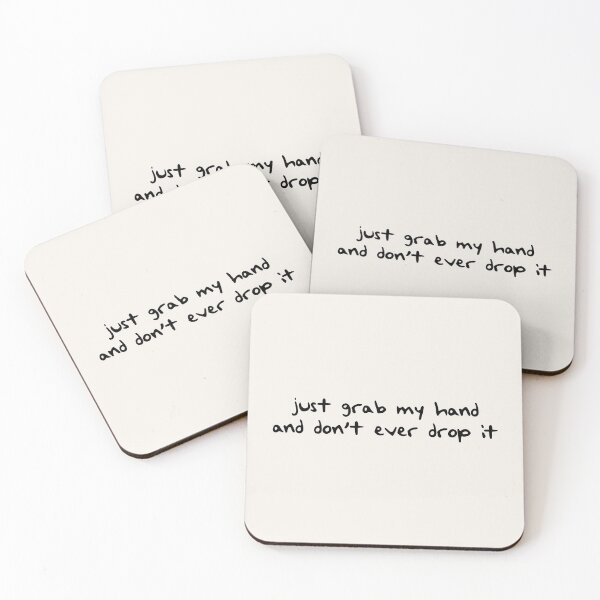 just grab my hand
and don't ever drop it
just grab my hand
and don't ever drop it
just grab my hand
and don't ever drop it
just grab my hand
and don't ever drop it